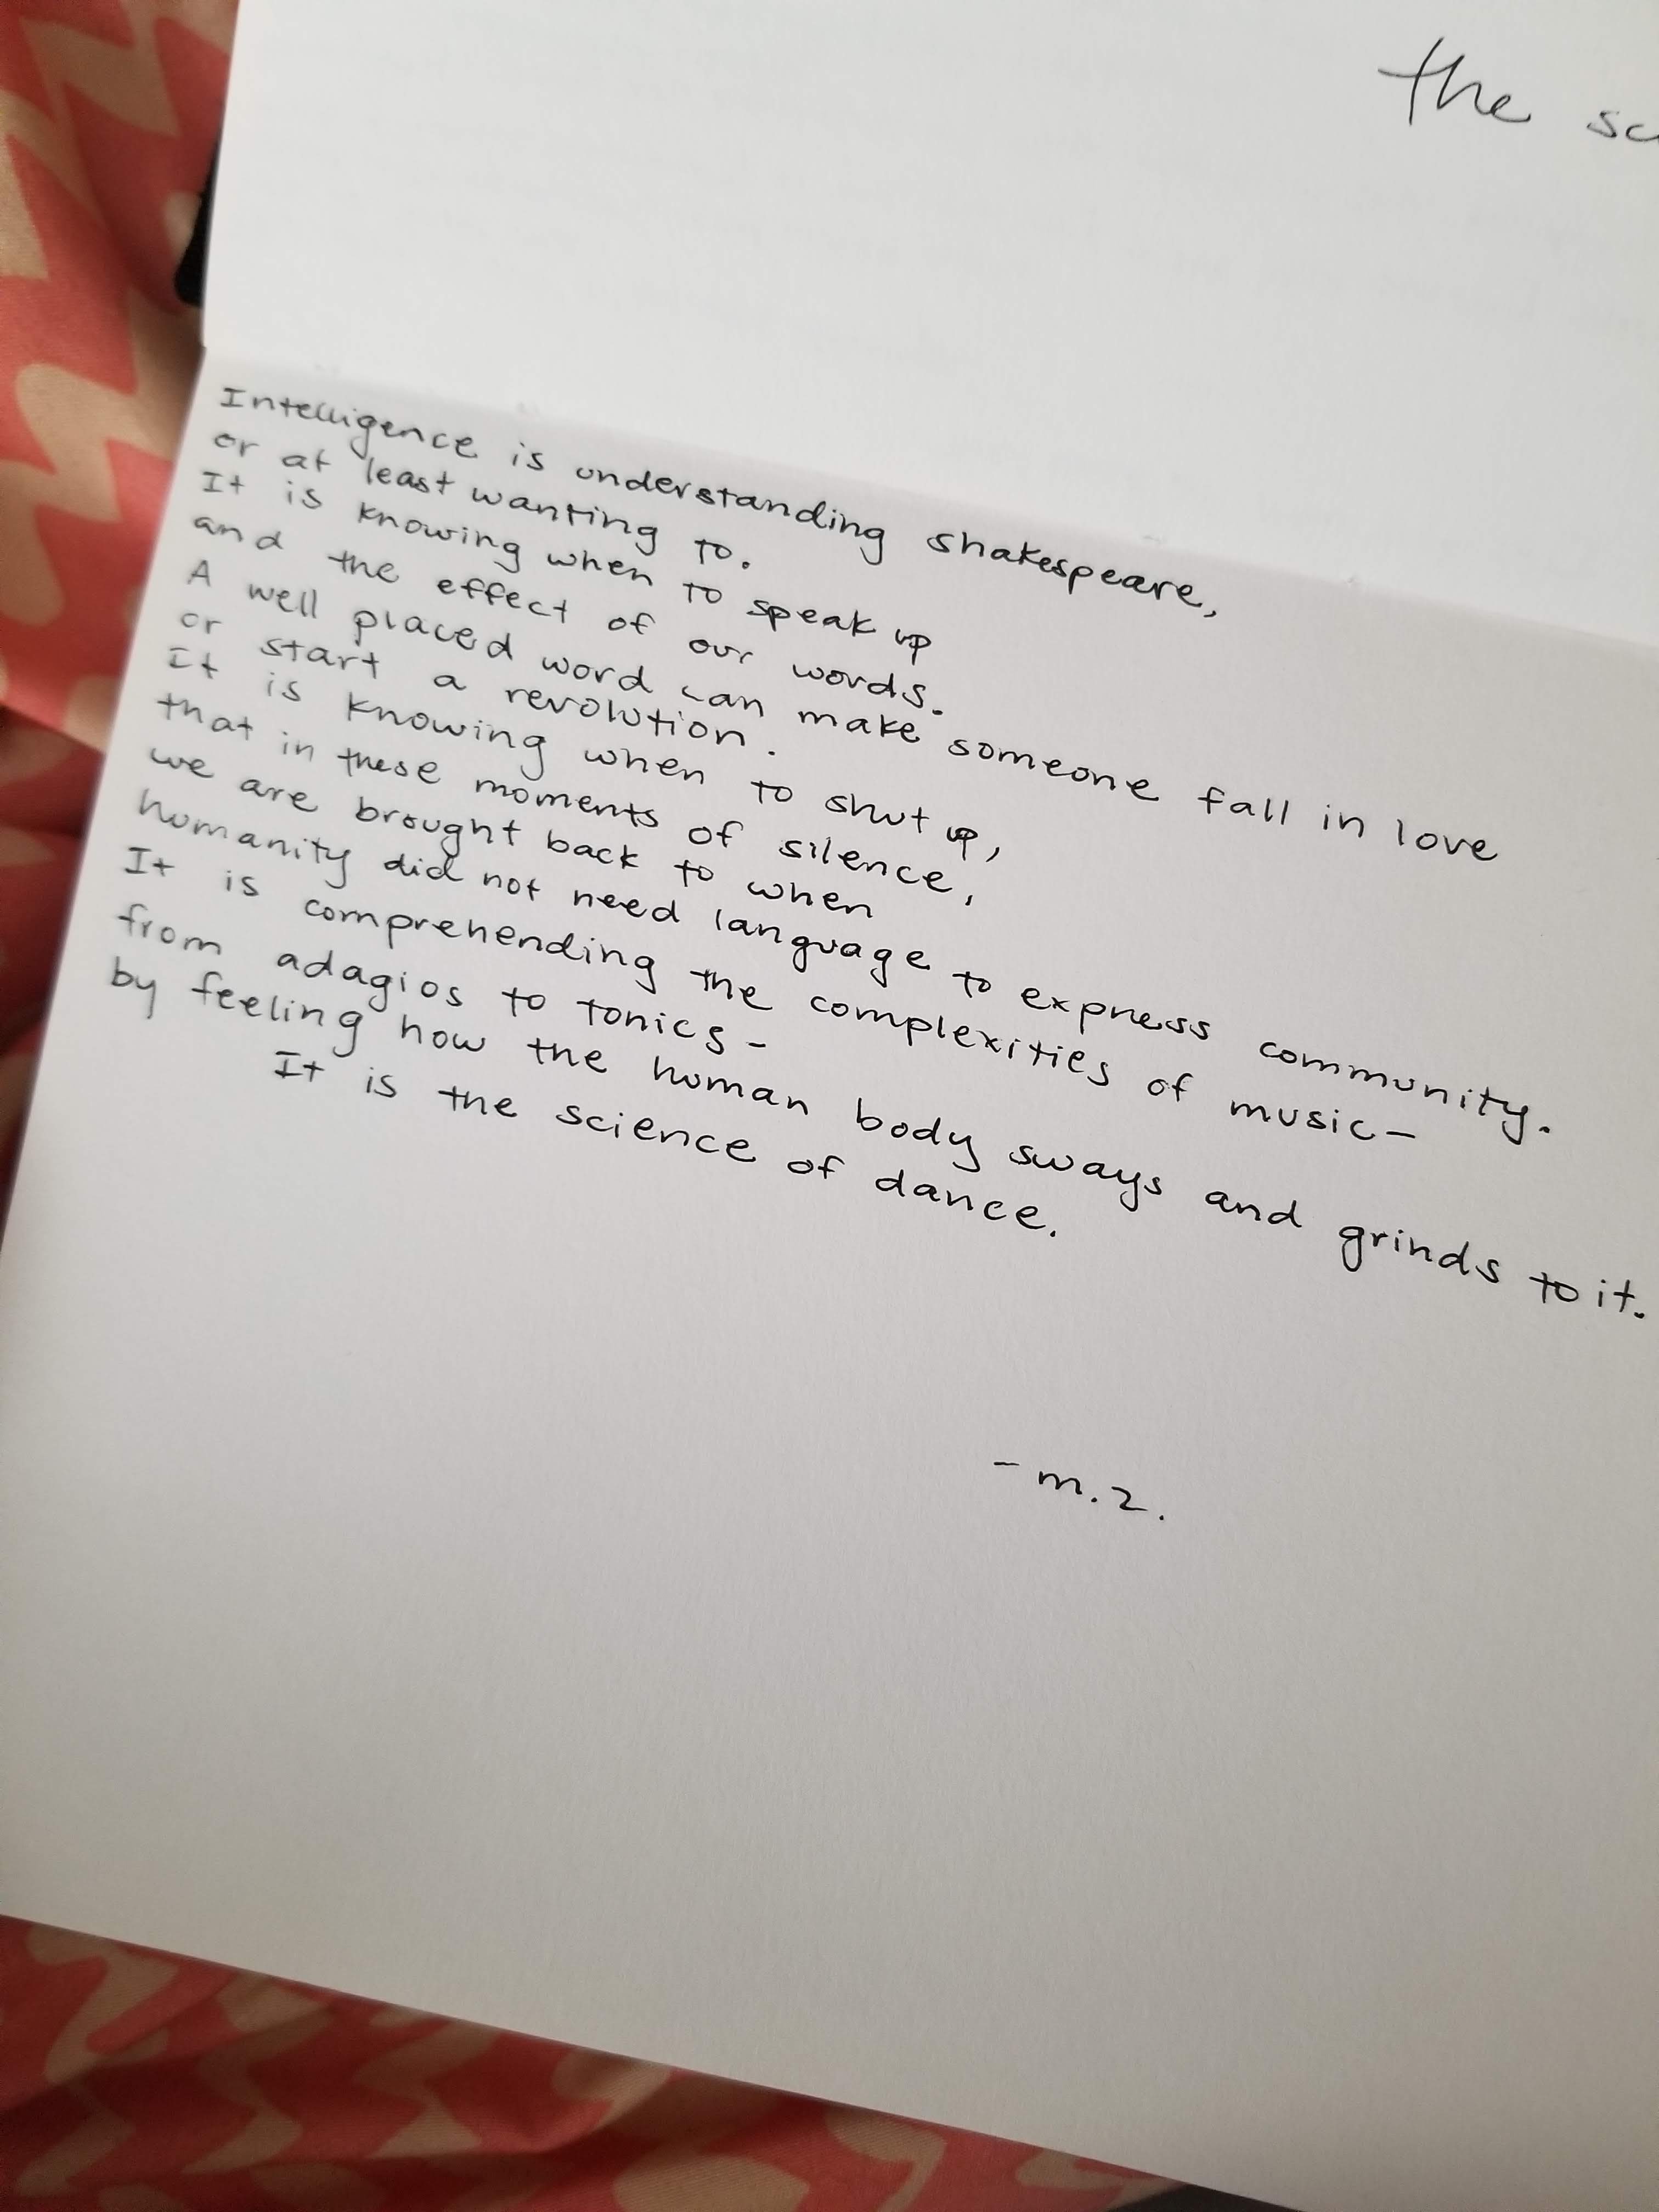 the sc
Intelligence is understanding shakespeare,
or at least wanting to.
It is knowing when to speak up
and the effect of our words.
A well placed word can make someone fall in love
or start a revolution.
It is knowing when to shut up,
that in these moments of silence,
we are brought back to when
humanity did not need language to express community.
It is comprehending the complexities of music-
from adagios to tonics-
by feeling how the human body sways and grinds to it.
It is the science of dance.
- m.z.